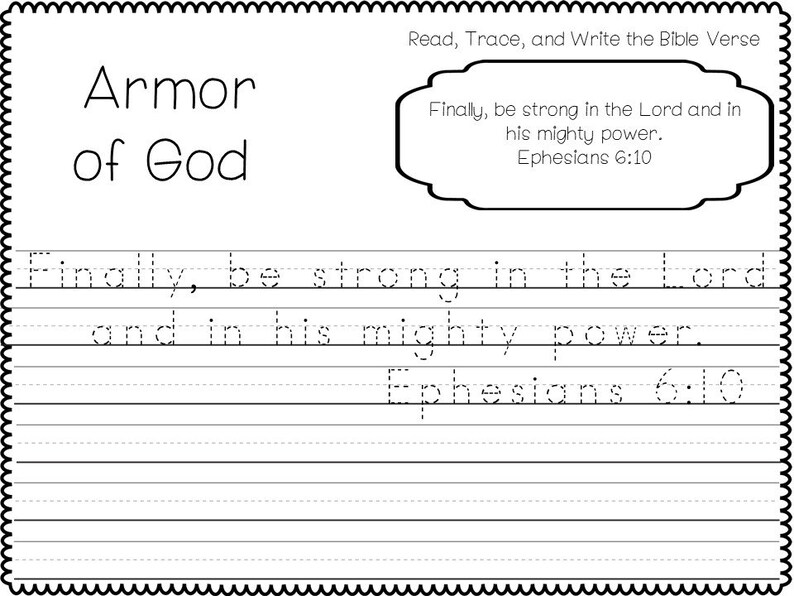 Read, Trace, and Write the Bible Verse
Armor
of God
Finally, be strong in the Lord and in
his mighty power.
Ephesians 6:10
Finally, be strong in the Lord
and in his mighty power.
Ephesians 6:10